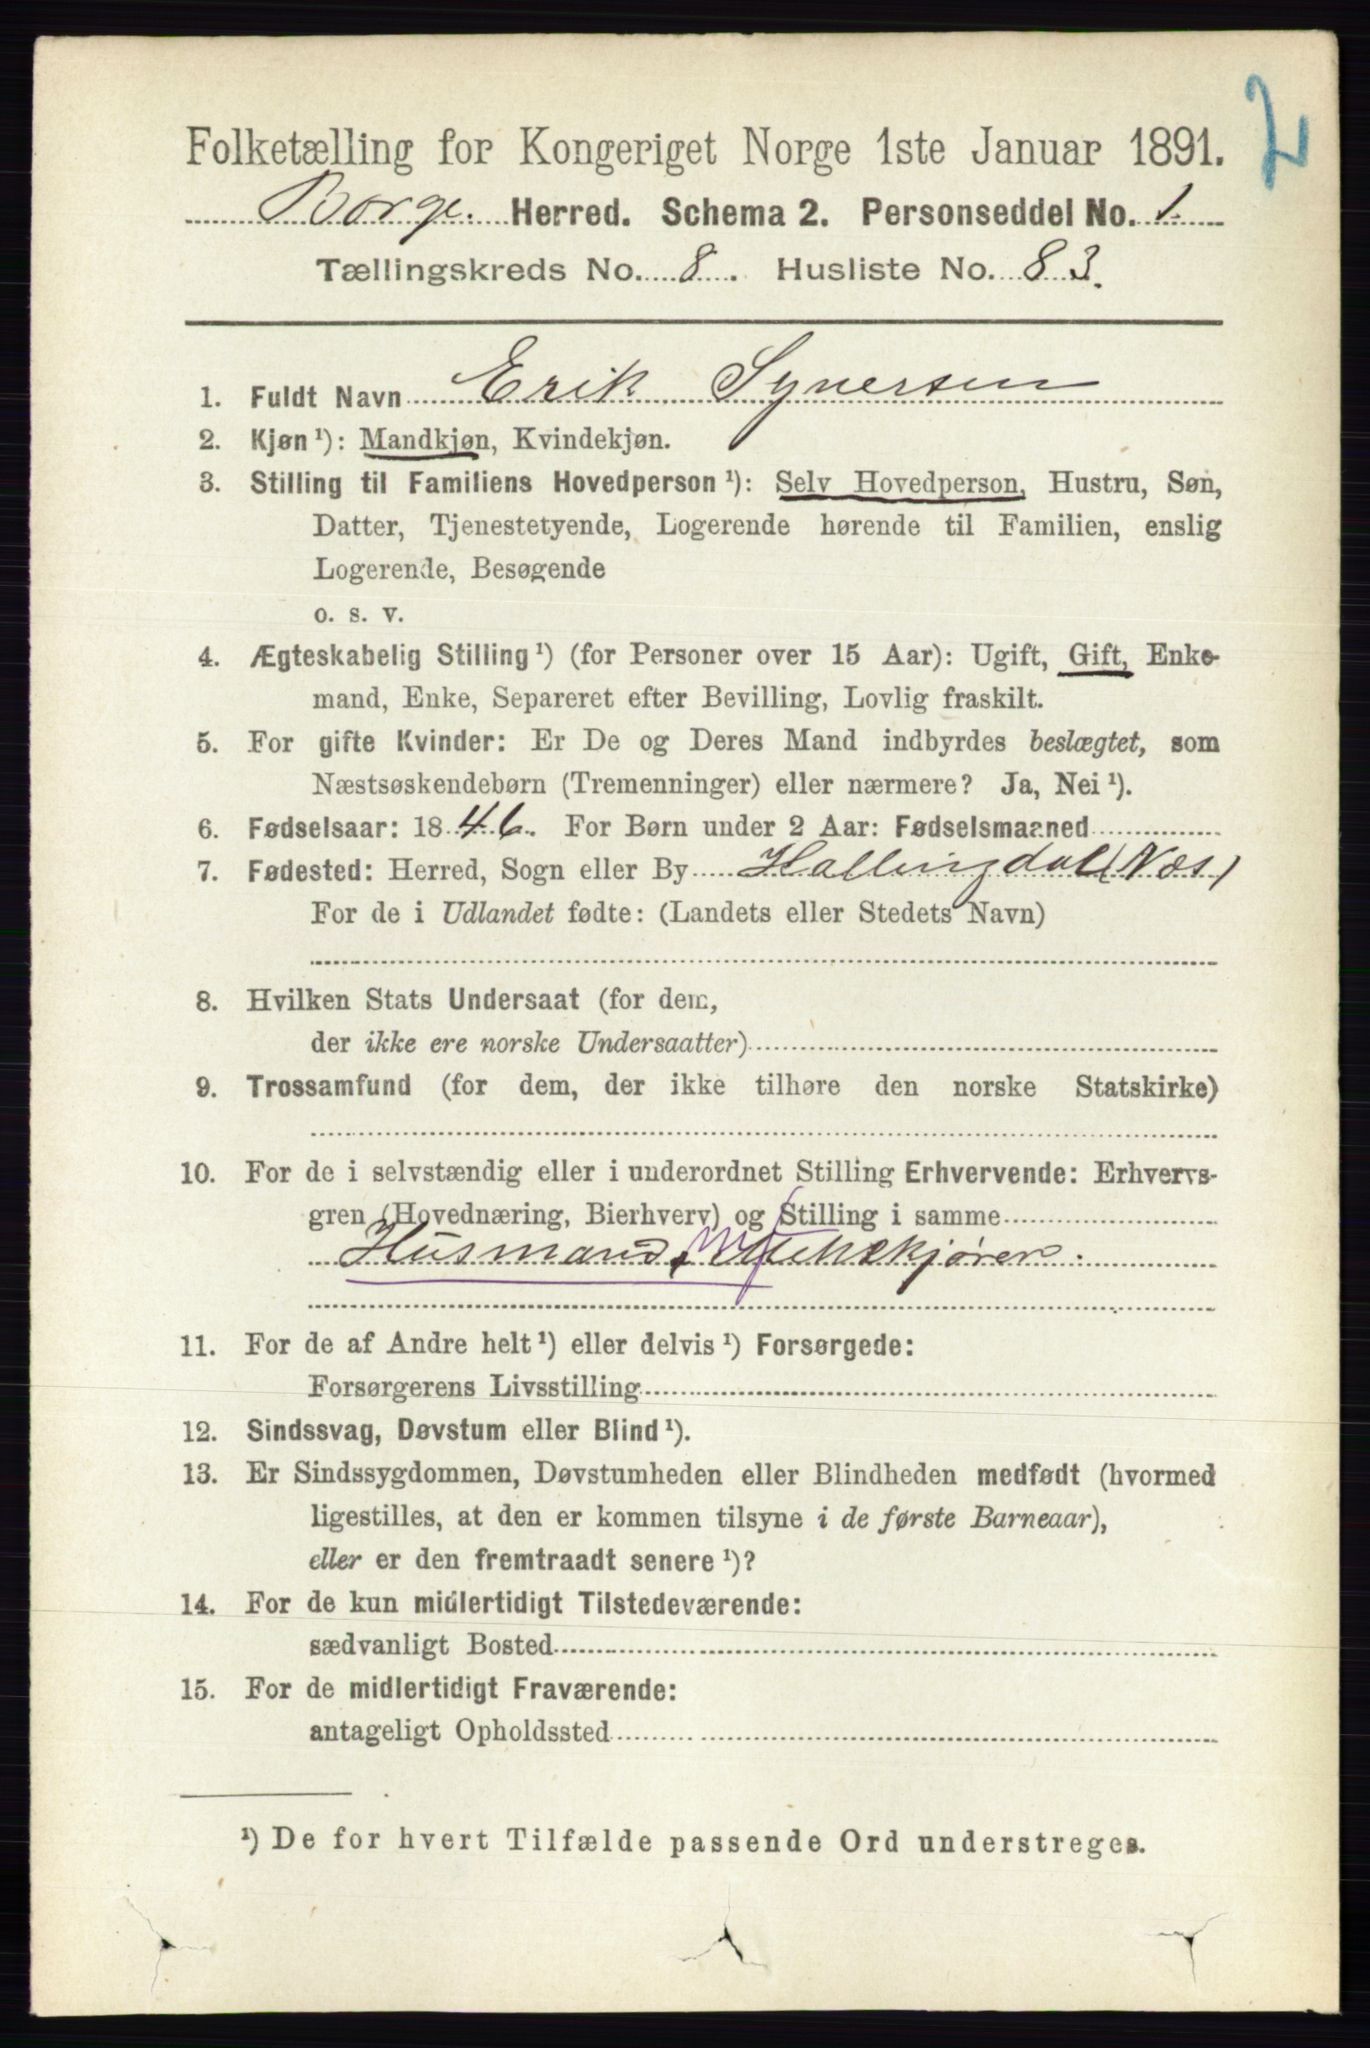 2
Folketælling for Kongeriget Norge 1ste Januar 1891.
Borge. Herred. Schema 2. Personseddel No. 1.
Tællingskreds No. 8. Husliste No. 83.
1. Fuldt Navn Erik Synersen
2. Kjøn ¹): Mandkjøn, Kvindekjøn.
3. Stilling til Familiens Hovedperson ¹): Selv Hovedperson, Hustru, Søn,
Datter, Tjenestetyende, Logerende hørende til Familien, enslig
Logerende, Besøgende
o. s. v.
4. Ægteskabelig Stilling ¹) (for Personer over 15 Aar): Ugift, Gift, Enke-
mand, Enke, Separeret efter Bevilling, Lovlig fraskilt.
5. For gifte Kvinder: Er De og Deres Mand indbyrdes beslægtet, som
Næstsøskendebørn (Tremenninger) eller nærmere? Ja, Nei ¹).
6. Fødselsaar: 1846. For Børn under 2 Aar: Fødselsmaaned
7. Fødested: Herred, Sogn eller By Hallingdal (Næs)
For de i Udlandet fødte: (Landets eller Stedets Navn)
8. Hvilken Stats Undersaat (for dem,
der ikke ere norske Undersaatter)
9. Trossamfund (for dem, der ikke tilhøre den norske Statskirke)
10. For de i selvstændig eller i underordnet Stilling Erhvervende: Erhvervs-
gren (Hovednæring, Bierhverv) og Stilling i samme
Husmand,
11. For de af Andre helt ¹) eller delvis ¹) Forsørgede:
Forsørgerens Livsstilling
12. Sindssvag, Døvstum eller Blind ¹).
13. Er Sindssygdommen, Døvstumheden eller Blindheden medfødt (hvormed
ligestilles, at den er kommen tilsyne i de første Barneaar),
eller er den fremtraadt senere ¹)?
14. For de kun midlertidigt Tilstedeværende:
sædvanligt Bosted
15. For de midlertidigt Fraværende:
antageligt Opholdssted
¹) De for hvert Tilfælde passende Ord understreges.